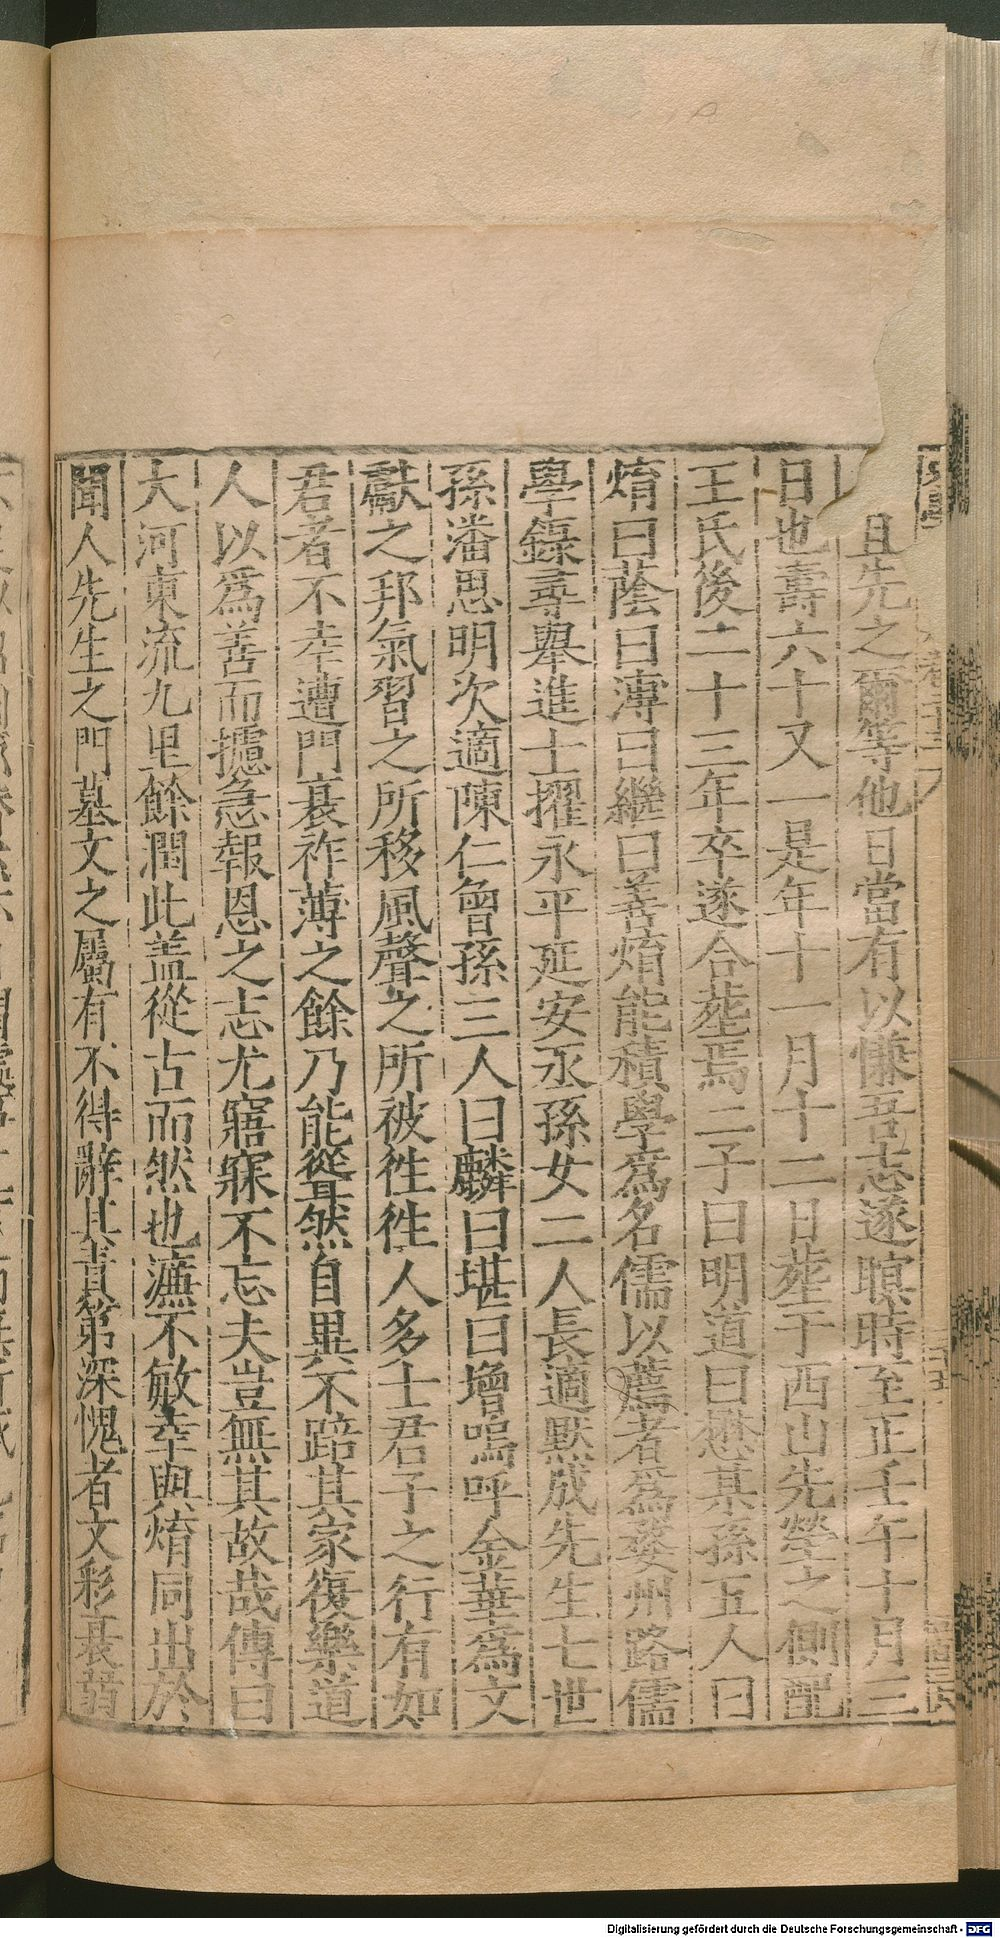 且先之爾等他日當有以慊吾志遂瞑時至正壬午十月三
日也壽六十又一是年十一月十二日塟于西山先塋之側配
王氏後二十三年卒遂合塟焉二子曰明道曰懋某孫五人曰
焴曰蔭曰漙曰繼曰善焴能積學爲名儒以薦者爲婺州路儒
學錄尋舉進士擢永平延安丞孫女二人長適默成先生七世
孫潘思明次適陳仁曾孫三人曰麟曰堪曰增嗚呼金華爲文
獻之邦氣習之所移風聲之所被徃徃人多士君子之行有如
君者不幸遭門衰祚薄之餘乃能聳然自異不踣其家復樂道
人以爲善而攄急報恩之志尤寤寐不忘夫豈無其故哉傳曰
大河東流九里餘潤此盖從古而然也濂不敏幸與焴同出於
聞人先生之門墓文之屬有不得辭其責第深愧者文彩衰弱
Digitalisierung gefördert durch die Deutsche Forschungsgemeinschaft - DFG